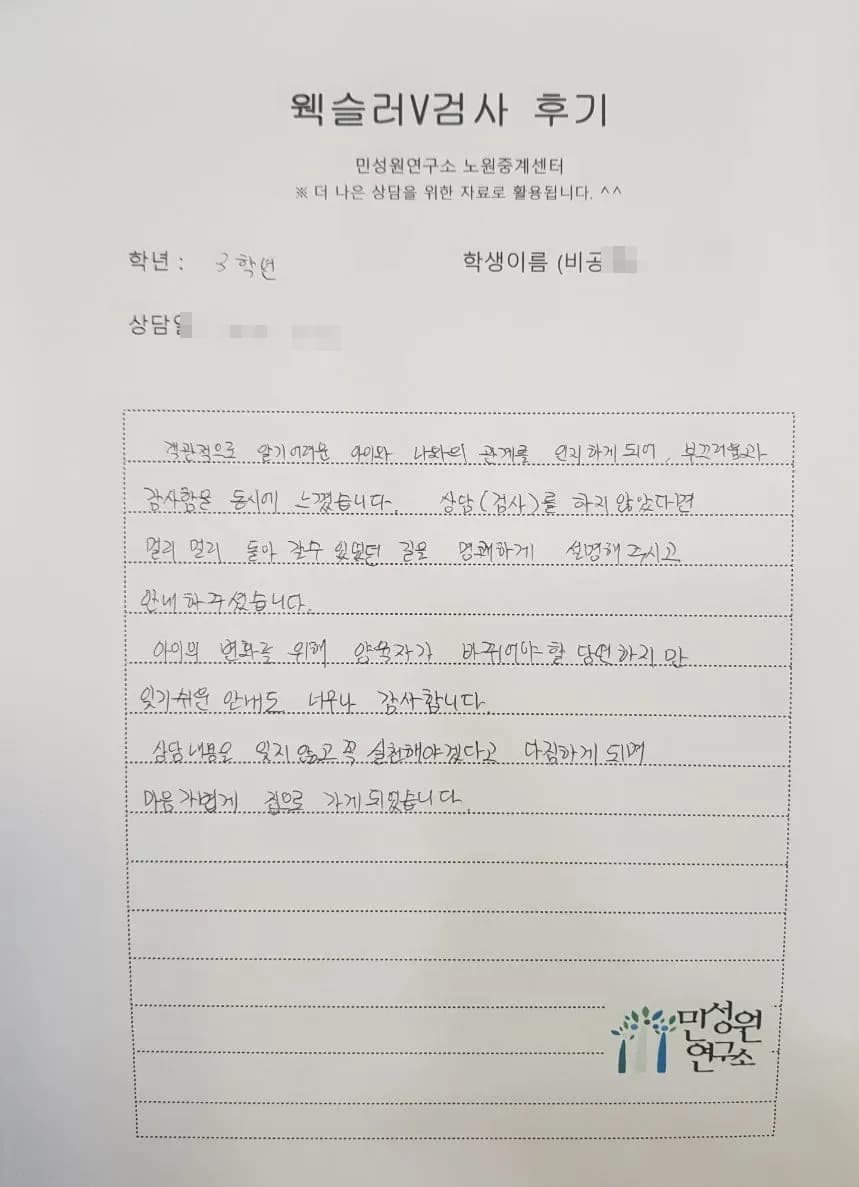 웩슬러V검사 후기
민성원연구소 노원중계센터
※ 더 나은 상담을 위한 자료로 활용됩니다. ^^
학년 : 3학년 학생이름 (비공
상담일
객관적으로 알기어려운 아이와 나와의 관계를 인지하게 되어, 부끄러움과
감사함을 동시에 느꼈습니다. 상담(검사)를 하지 않았다면
멀리 멀리 돌아 갈수 있었던 길을 명쾌하게 설명해 주시고
안내해 주셨습니다.
아이의 변화를 위해 양육자가 바뀌어야 할 당연하지만
잊기쉬운 안내도 너무나 감사합니다.
상담내용은 잊지 않고 꼭 실천해야겠다고 다짐하게 되며
마음 가볍게 집으로 가게 되었습니다.
민성원
연구소